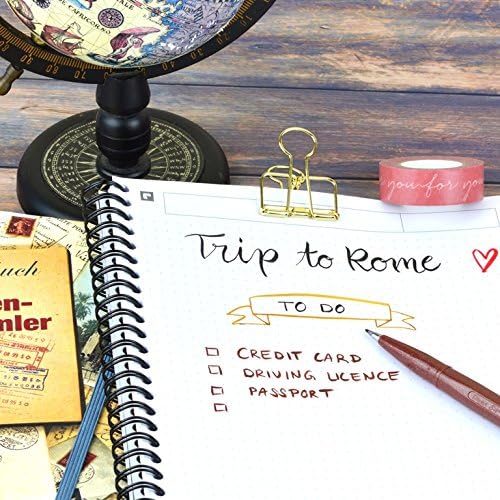 CAPRICORNO
you · for you
Trip to Rome
TO DO
CREDIT CARD
DRIVING LICENCE
PASSPORT
uch
en-
mler